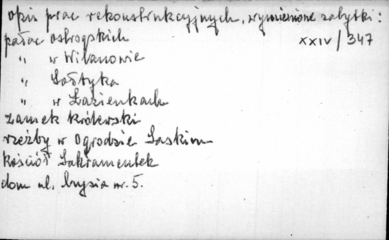 opis prac rekonstrukcyjnych, wymienione zabytki:
pałac ostrogskich XXIV/347
" w Wilanowie
" Sołtyka
" w Łazienkach
zamek królewski
rzeźby w Ogrodzie Saskim
kościół Sakramentek
dom ul. nr. 5.